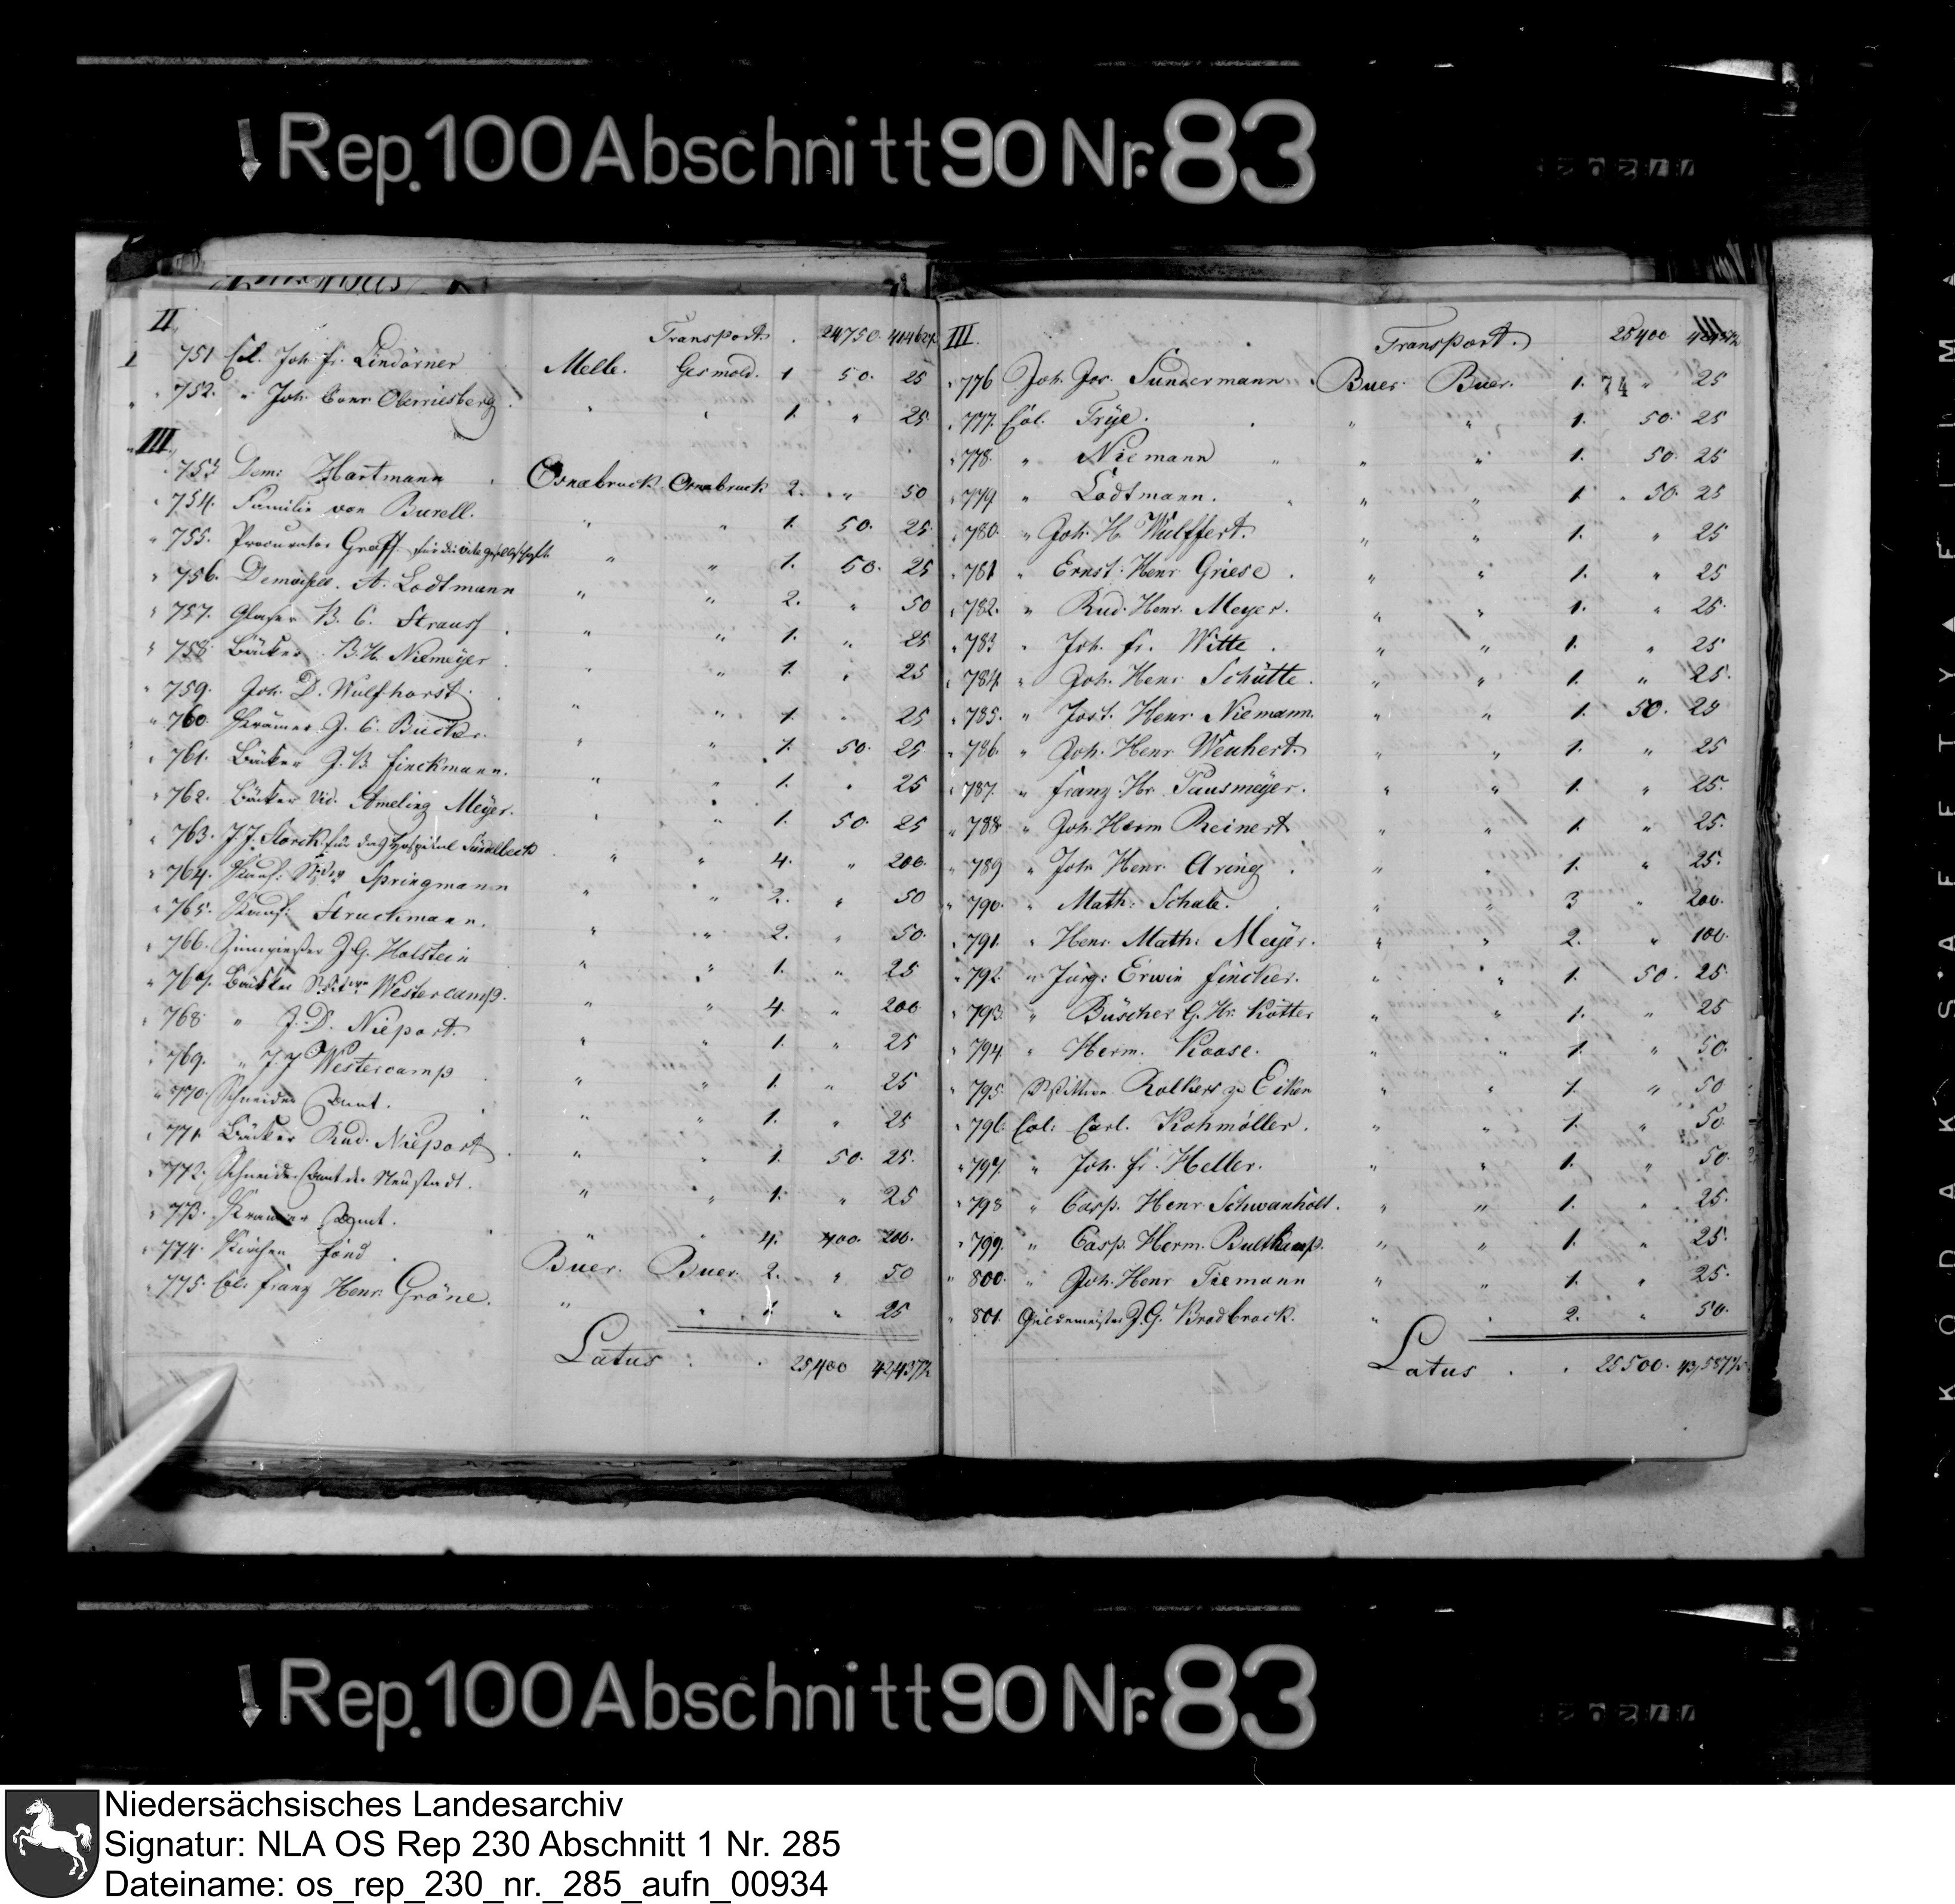 Rep. 100 Abschnitt 90 Nr. 83
II.
Transport. 24750.
I 751 Col. Joh. fr. Lindörner Melle. Gesmold. 1 50. 25
" 752. " Joh. Conr. Oberriesberg " " 1. " 25.
III.
753 Dem: Hartmann Osnabruck Osnabruck 2. " 50
" 754. Familie von Burell. " " 1. 50. 25.
" 755. Procurator Graff. für die " " 1. 50. 25
" 756. Demoisell. A. Lodtmann " " 2. " 50
" 757. Glaser B. C. Strauss " " 1. " 25
" 758. Bäcker B. H. Niemeyer " " 1. " 25
" 759. Joh. D. Wulfhorst. " " 1. " 25
" 760. Krämer J. C. " " 1. 50. 25
" 761. Bäcker J. B. finckmann. " " 1. " 25
" 762. Bäcker Vid. Ameling Meyer. " " 1. 50. 25
" 763. J. J. Storck für das Hospital Sündelbeck " " 4. " 200.
" 764. Kauf: Springmann " " 2. " 50
" 765. Kauf: Struckmann. " " 2. " 50.
" 766. Zinngießer J. G. Holstein " " 1. " 25
" 767. Bäcker Westercamp. " " 4. " 200
" 768. " J. D. Nieport. " " 1. " 25
" 769. " J. J. Westercamp " " 1. " 25
" 770. Schneider Amt. " " 1. " 25
" 771. Bäcker Rud. Nieport " " 1. 50. 25.
" 772. Schneider Amt der Neustadt. " " 1. " 25
" 773. Kramer Amt. " " 4. 400. 200.
" 774. Kirchen fond Buer. Buer. 2. " 50
" 775. Col. franz Henr. Gröne. " " 1. " 25
Latus . . 25,400
III.
Transport. 25400
" 776 Joh. Jos. Sundermann Buer. Buer. 1. 74 " 25
" 777. Col. Frye. " " 1. 50. 25
" 778. " Niemann " " 1. 50. 25
" 779 " Lodtmann. " " 1. 50. 25
" 780. " Joh. H. Wulffert. " " 1. " 25
" 781 " Ernst. Henr Griese " " 1. " 25
" 782. " Rud. Henr. Meyer. " " 1. " 25.
" 783 " Joh. fr. Witte " " 1. " 25
" 784. " Joh. Henr Schütte. " " 1. " 25.
" 785. " Jost. Henr. Niemann. " " 1. 50. 25
" 786. " Joh. Henr. " " 1. " 25
" 787. " franz. Hr. Pausmeyer. " " 1. " 25.
" 788. " Joh. Herm Reinert " " 1. " 25.
" 789 " Joh. Henr. Aring " " 1. " 25.
" 790. " Math: Schale. " " 3 " 200.
" 791. " Henr. Math: Meyer. " " 2. " 100.
" 792. " Jürg: Erwin fincker. " " 1. 50. 25.
" 793. " Büscher G. Hr. Kötter " " 1. " 25
" 794 " Herm. Koose. " " 1. " 50.
" 795. Wittwe. Rolkers zu Eiken " " 1. " 50
" 796. Col: Carl. Kohmöller. " " 1. " 50
" 797. " Joh. fr. Heller. " " 1. " 50.
" 798 " Casp. Henr. Schwanhölt. " " 1. " 25.
" 799. " Casp. Herm. Bultkamp. " " 1. " 25.
" 800. " Joh. Henr Tiemann " " 1. " 25.
" 801. Gildemeister J. G. Brodbrock. " " 2. " 50.
Latus . . 25500.
KODAK SAFETY FILM
Rep. 100 Abschnitt 90 Nr. 83
Niedersächsisches Landesarchiv
Signatur: NLA OS Rep 230 Abschnitt 1 Nr. 285
Dateiname: os_rep_230_nr._285_aufn_00934